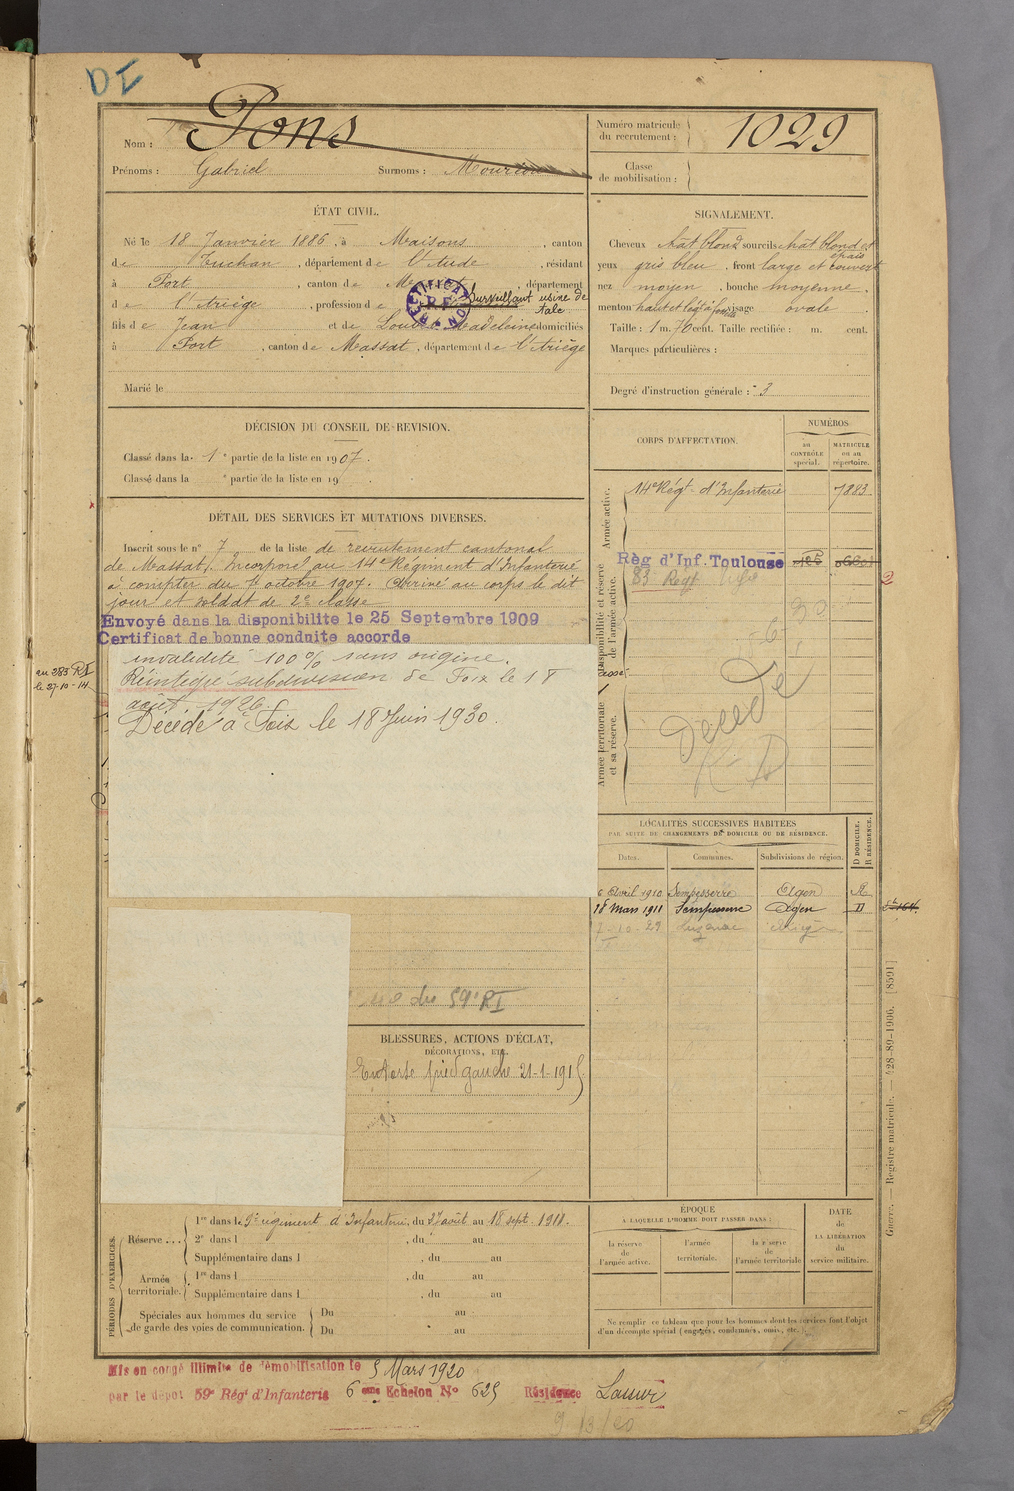 DI
Nom : Pons
Numéro matricule du recrutement : 1029
Prénoms : Gabriel Surnoms :
Classe de mobilisation :
ÉTAT CIVIL.
Né le 18 Janvier 1886, à Maisons, canton
de Tuchan, département de l'Aude, résidant
à Port, canton de, département
de l'Ariège, profession de Surveillant usine de talc
fils de Jean et de domiciliés
à Port, canton de Massat, département de l'Ariège
Marié le
RECTIFICATION
R.F.
SIGNALEMENT.
Cheveux chât blond sourcils chât blond et épais
yeux gris bleu, front large et couvert
nez moyen, bouche moyenne,
menton haut et visage ovale.
Taille : 1 m. 76 cent. Taille rectifiée : m. cent.
Marques particulières :
Degré d'instruction générale : 3
DÉCISION DU CONSEIL DE REVISION.
Classé dans la 1e partie de la liste en 1907.
Classé dans la e partie de la liste en 19
CORPS D'AFFECTATION.
NUMÉROS
au CONTRÔLE spécial.
MATRICULE ou au répertoire.
Armée active.
14e Régt d'Infanterie 7883
Disponibilité et réserve de l'armée active.
Règ d'Inf. Toulouse
83 Régt
Armée territoriale et sa réserve.
Décédé
DÉTAIL DES SERVICES ET MUTATIONS DIVERSES.
Inscrit sous le n° 7 de la liste de recrutement cantonal
de Massat. Incorporé au 14e Régiment d'Infanterie
à compter du 7 octobre 1907. Arrivé au corps le dit
jour et soldat de 2e classe
Envoyé dans la disponibilite le 25 Septembre 1909
Certificat de bonne conduite accorde
invalidité 100% sans origine.
Réintégré subdivision de Foix le 18
août 1926.
Décédé à Foix le 18 Juin 1930.
au 283 RI
le 27-10-14
LOCALITÉS SUCCESSIVES HABITÉES
PAR SUITE DE CHANGEMENTS DE DOMICILE OU DE RÉSIDENCE.
Dates. Communes. Subdivisions de région. D DOMICILE. R RÉSIDENCE.
6 Avril 1910 Sempesserre Agen R
18 Mars 1911 Sempesserre Agen D
7-10-29 Luzenac
du 59e RI
BLESSURES, ACTIONS D'ÉCLAT,
DÉCORATIONS, ETC.
Entorse pied gauche 21-1-1915
Guerre. — Registre matricule. — 428-89-1906. [8591]
PÉRIODES D'EXERCICES.
Réserve ... 1re dans le 9e régiment d'Infanterie, du 27 août au 18 sept. 1911.
2e dans l , du au
Supplémentaire dans l , du au
Armée territoriale. 1re dans l , du au
Supplémentaire dans l , du au
Spéciales aux hommes du service de garde des voies de communication. Du au
Du au
ÉPOQUE
À LAQUELLE L'HOMME DOIT PASSER DANS :
la réserve de l'armée active.
l'armée territoriale.
la réserve de l'armée territoriale
DATE de LA LIBÉRATION du service militaire.
Ne remplir ce tableau que pour les hommes dont les services font l'objet
d'un décompte spécial (engagés, condamnés, omis, etc.).
Mis en congé illimité de démobilisation le 5 Mars 1920
par le dépot 59e Régt d'Infanterie 6 eme Echelon N° 625 Résidence
9/3/20